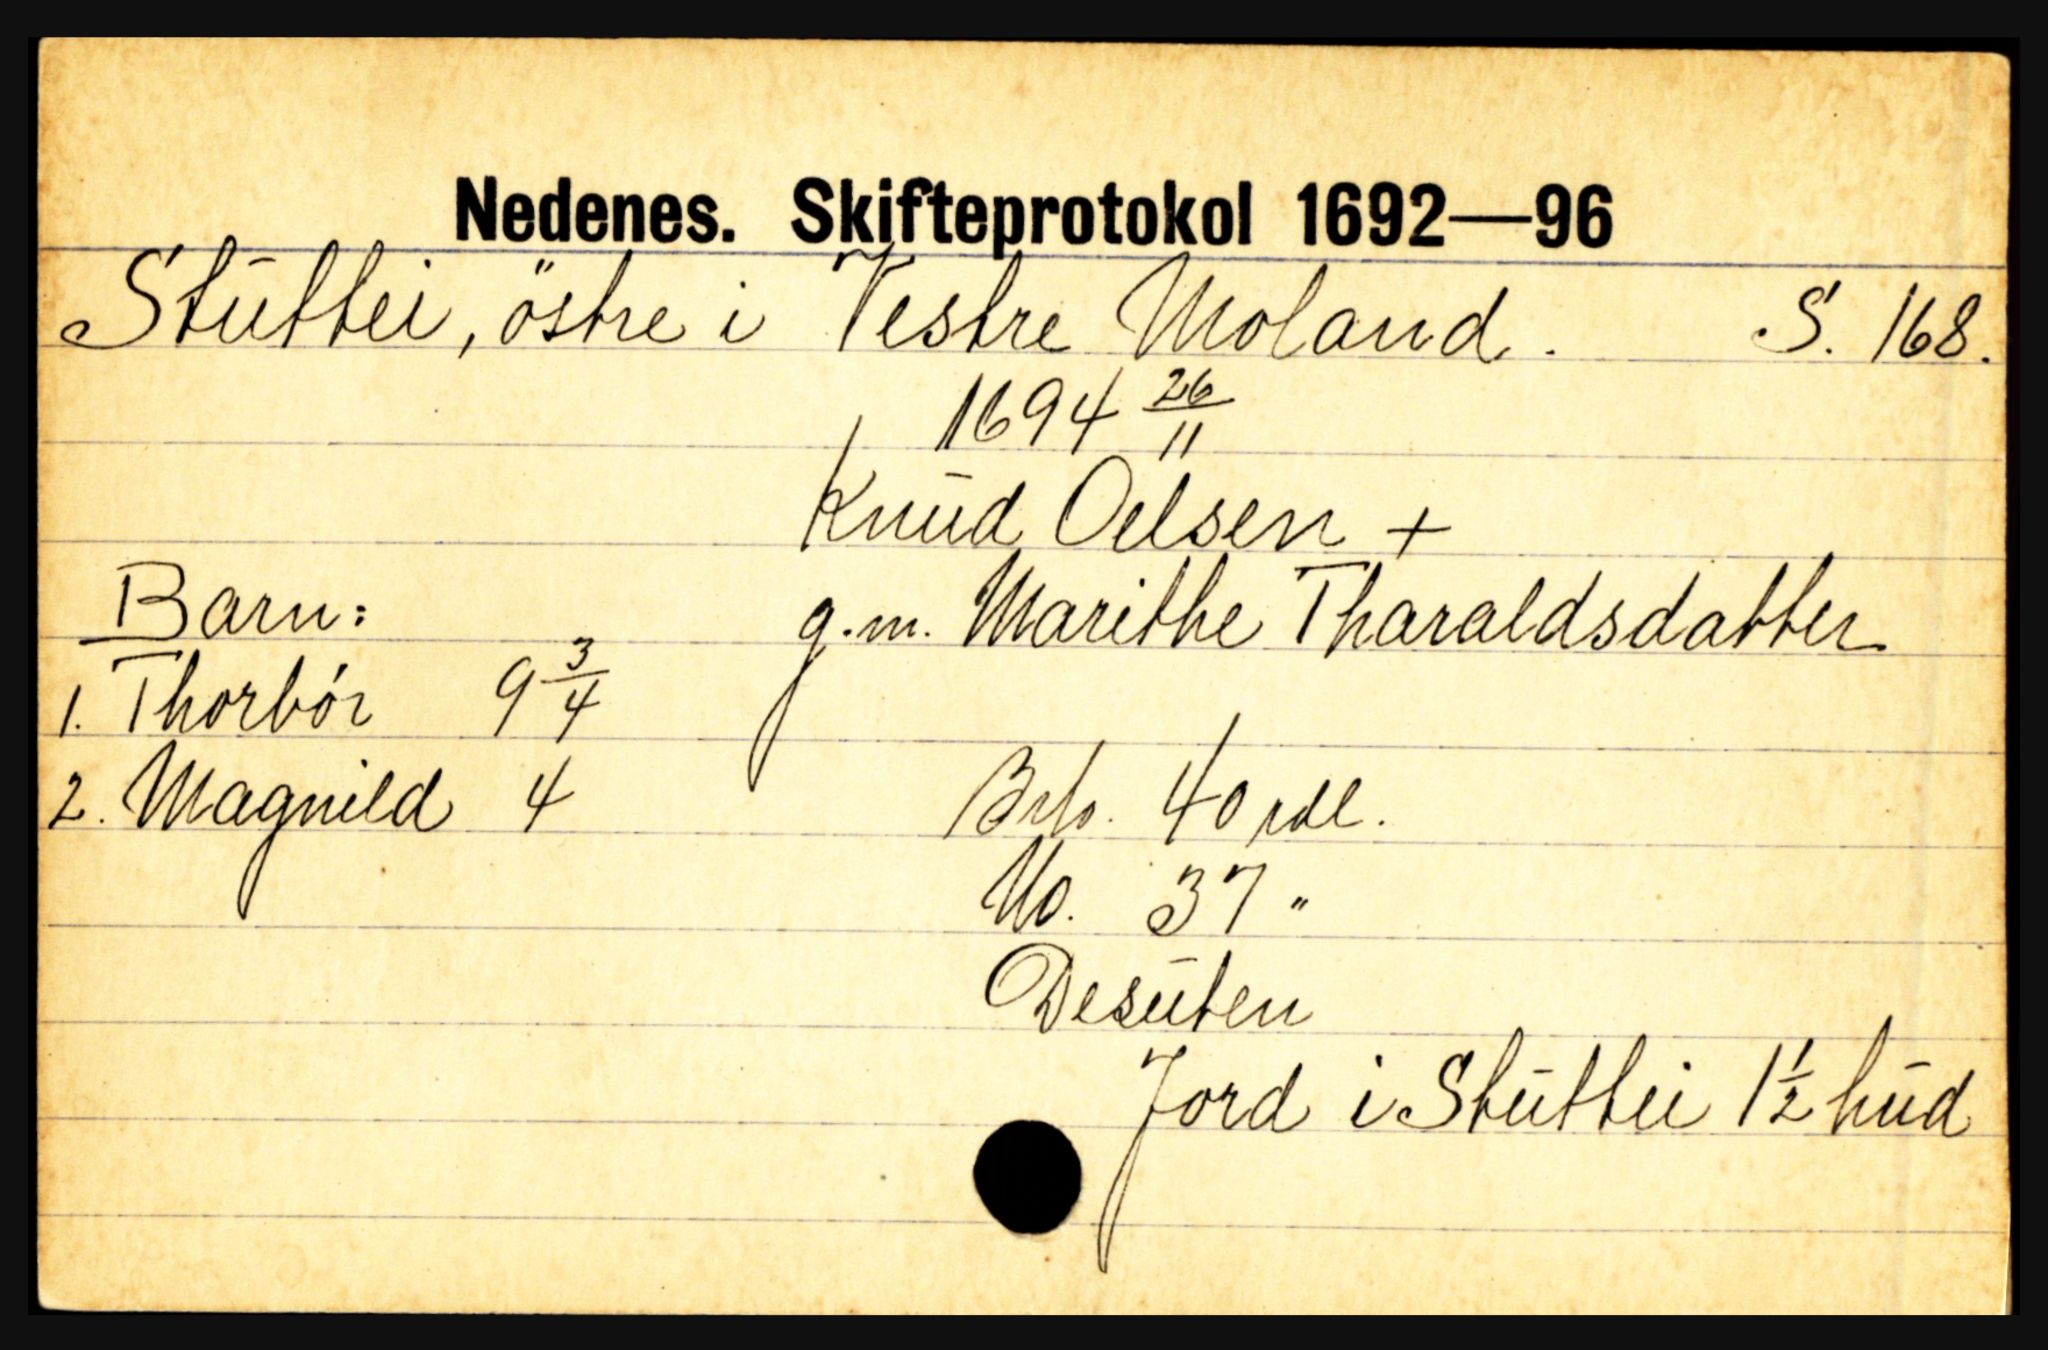 Nedenes. Skifteprotokol 1692—96
Stuttei, östre i Vestre Moland. S. 168.
1694 26/11
Knud Oelsen +
Barn: g.m. Marithe Tharaldsdatter
1. Thorbór 9 3/4
2. Magnild 4 Brto. 40 rdl.
No. 37 "
Desuten
Jord i Stuttei 1 1/2 hud